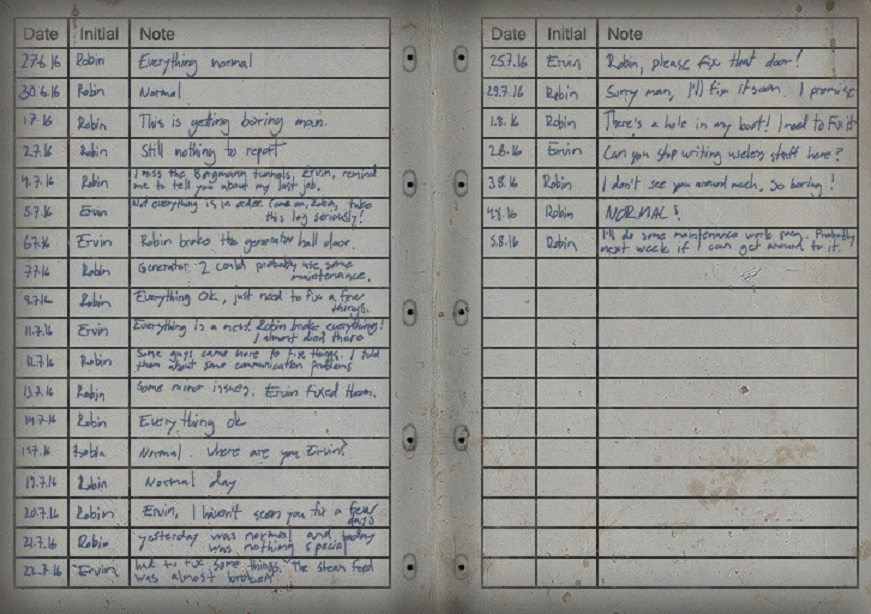 Date Initial Note
27.6.16 Robin Everything normal
30.6.16 Robin Normal
1.7.16 Robin This is getting boring man.
2.7.16 Robin Still nothing to report
4.7.16 Robin I miss the Bergmann tunnels, Ervin, remind
me to tell you about my last job.
5.7.16 Ervin Not everything is in order. Come on, Robin, take
this log seriously!
6.7.16 Ervin Robin broke the generator hall door.
7.7.16 Robin Generator 2 could probably use some
maintenance.
9.7.16 Robin Everything OK, just need to fix a few
things.
11.7.16 Ervin Everything is a mess! Robin broke everything!
I almost died there
12.7.16 Robin Some guys came here to fix things. I told
them about some communication problems
13.7.16 Robin Some minor issues. Ervin fixed them.
14.7.16 Robin Everything ok
Normal. Where are you Ervin?
19.7.16 Robin Normal day
20.7.16 Robin Ervin, I haven't seen you for a few
days
21.7.16 Robin yesterday was normal and today
was nothing special
22.7.16 Ervin had to fix some things. The steam feed
was almost broken
Date Initial Note
25.7.16 Ervin Robin, please fix that door!
29.7.16 Robin Sorry man, I'll fix it soon. I promise
1.8.16 Robin There's a hole in my boot! I need to fix it
2.8.16 Ervin Can you stop writing useless stuff here?
3.8.16 Robin I don't see you around much. So boring!
4.8.16 Robin NORMAL!
5.8.16 Robin I'll do some maintenance work soon. Probably
next week if I can get around to it.